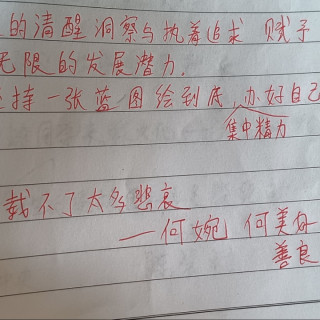 的清醒洞察与执着追求 赋予
无限的发展潜力.
持一张蓝图绘到底,办好自己
集中精力
载不了太多悲哀
—何婉 何美好
善良